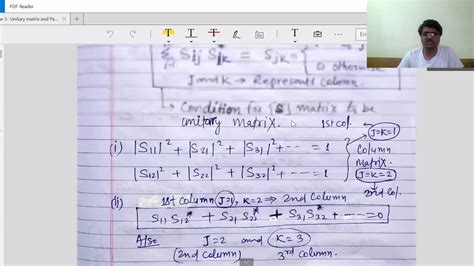 PDF Reader
e 5- Unitary matrix and Pa...
Σ Sij Sjk* = Sjk = {
i=1
0 otherwise
J and K → Represents column.
Condition for [S] matrix to be
unitary matrix.
1st col.
(i) |S11|² + |S21|² + |S31|² + --- = 1
J=K=1
Column
Matrix.
|S12|² + |S22|² + |S32|² + --- = 1
J=K=2
2nd Col.
(ii) 1st column J=1, K=2 → 2nd column
S11 S12* + S21 S22* + S31 S32* + ---- = 0
Also J=2 and K=3
(2nd column) 3rd column.